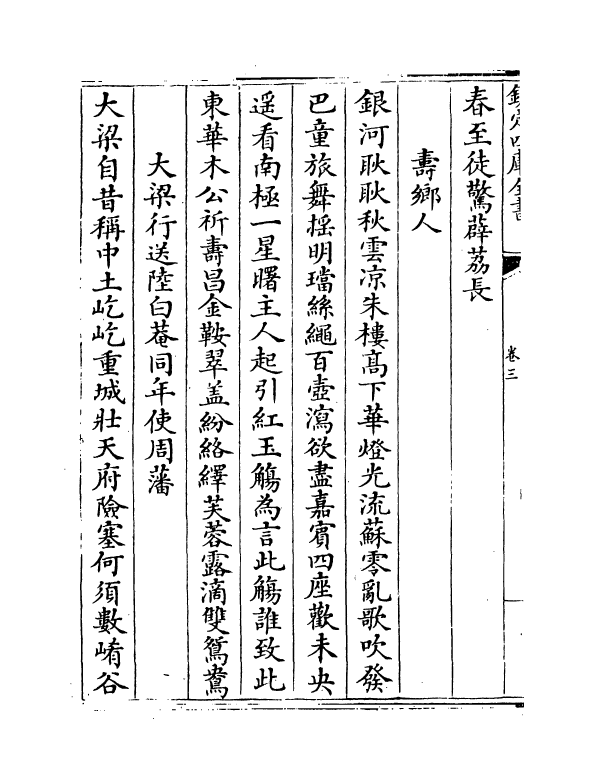 欽定四庫全書
卷三
春至徒驚薜荔長
壽鄉人
銀河耿耿秋雲凉朱樓髙下華燈光流蘇零亂歌吹發
巴童旅舞摇明璫絲繩百壺瀉欲盡嘉賓四座歡未央
遥看南極一星曙主人起引紅玉觴為言此觴誰致此
東華木公祈壽昌金鞍翠盖紛絡繹芙蓉露滴雙鴛鴦
大梁行送陸白菴同年使周藩
大梁自昔稱中土屹屹重城壯天府險塞何須數崤谷